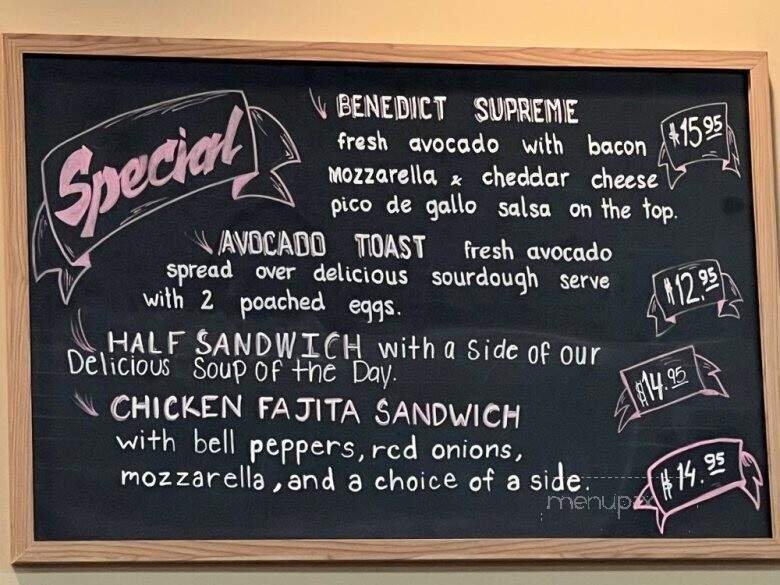 Special
BENEDICT SUPREME
fresh avocado with bacon
$15.95
mozzarella & cheddar cheese
pico de gallo salsa on the top.
AVOCADO TOAST fresh avocado
spread over delicious sourdough serve
$12.95
with 2 poached eggs.
HALF SANDWICH with a side of our
Delicious Soup of the Day.
$14.95
CHICKEN FAJITA SANDWICH
with bell peppers, red onions,
mozzarella, and a choice of a side.
$14.95
menupix